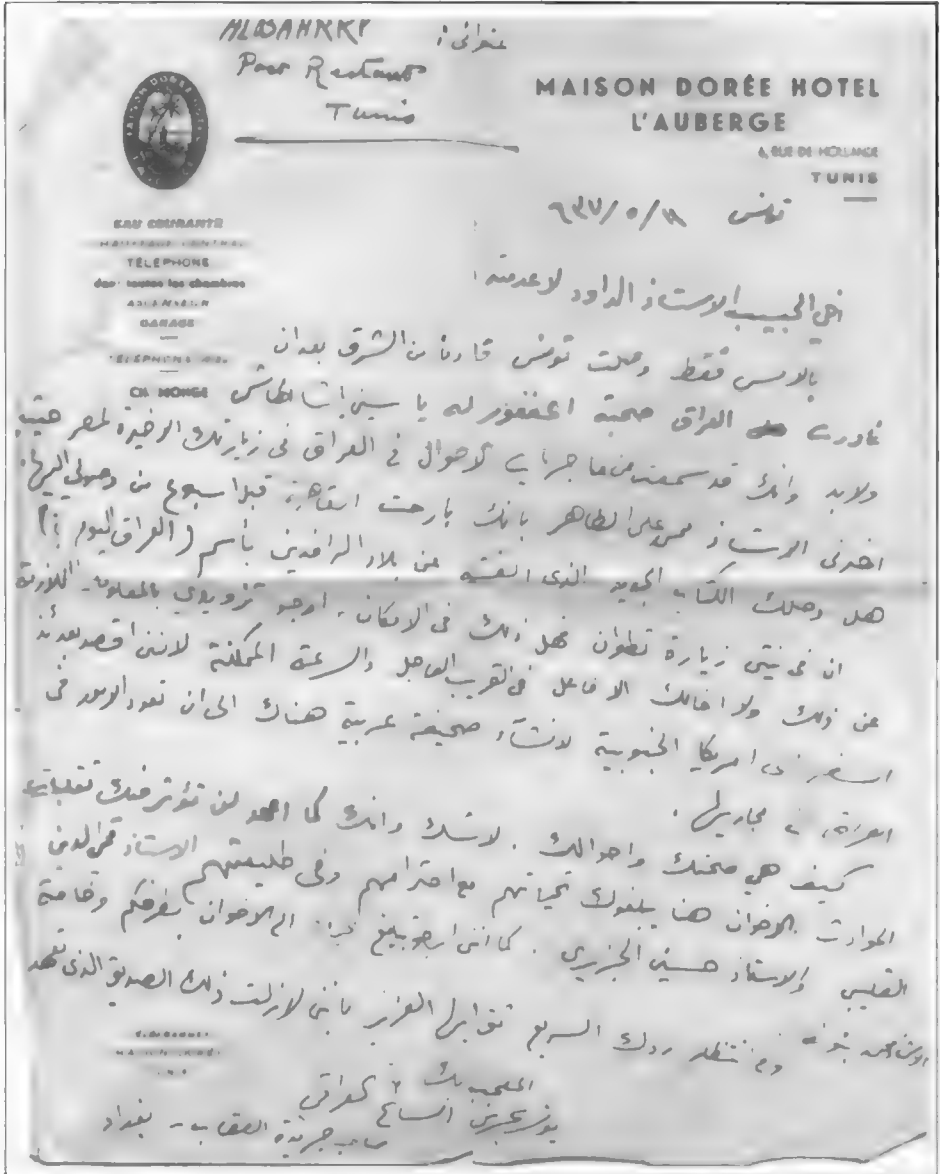 عنواني :
ALBAHRRY
Post Restant
Tunis
MAISON DORÉE HOTEL
L'AUBERGE
6, RUE DE HOLLANDE
TUNIS
MAISON DORÉE HOTEL
EAU COURANTE
CHAUFFAGE CENTRAL
TÉLÉPHONE
dans toutes les chambres
ASCENSEUR
GARAGE
TÉLÉPHONE
CH. MONGE
تونس ٩٣٧/٥/١١
اخي الحبيب الاستاذ الداود لاعدمته :
بالامس فقط وصلت تونس قادما من الشرق بعد ان
غادرت العراق صحبة المغفور له ياسين باشا الهاشمي
ولابد وانك قد سمعت من ماجريات الاحوال في العراق في زيارتك الاخيرة لمصر حيث
اخبرني الاستاذ محمد علي الطاهر بانك بارحت القاهرة قبل اسبوع من وصولي اليها.
هل وصلك الكتاب الجديد الذي الفته عن بلاد الرافدين بأسم (العراق اليوم ؟)
ان في نيتي زيارة تطوان فهل ذلك في الامكان. ارجو تزويدي بالمعلومات اللازمة
عن ذلك ولا اخالك الا فاعل في القريب العاجل والسرعة الممكنة لانني اقصد بعدئذ
السفر الى امريكا الجنوبية لانشاء صحيفة عربية هناك الى ان تعود الامور في
العراق الى مجاريها.
كيف هي صحتك واحوالك. لاشك وانك كما اعهد لن تؤثر فيك تقلبات
الحوادث. الاخوان هنا يبلغوك تحياتهم مع احترامهم وفي طليعتهم الاستاذ محي الدين
القليبي والاستاذ حسين الجزيري. كما انني ارجو تبليغ الاخوان بطرفكم وخاصة
الاستاذ محمد بنونه وفي انتظار ردك السريع تقبل ايها العزيز بانني لازلت ذلك الصديق الذي تعهد
المعجب بك
يونس بحري السائح العراقي
صاحب جريدة العقاب - بغداد